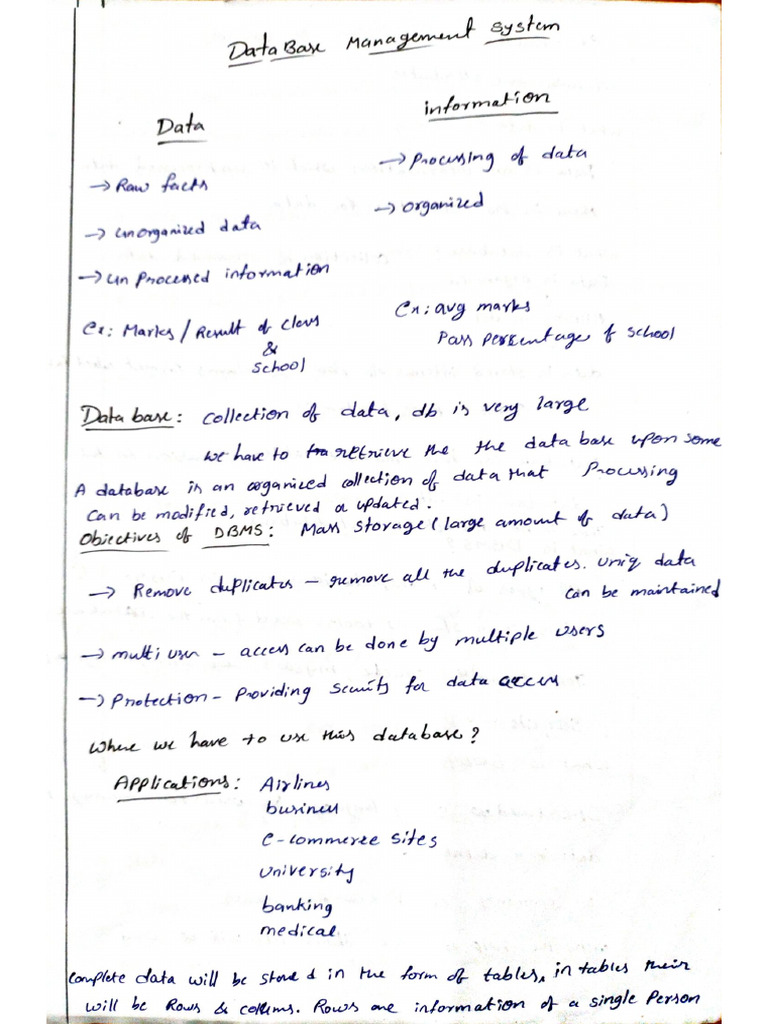 DataBase Management System
Data
information
→ Raw facts
→ Processing of data
→ unorganized data
→ organized
→ un Processed information
Ex: Marks / Result of class
&
School
Ex: avg marks
Pass percentage of school
Data base: collection of data, db is very large
we have to retrieve the the data base upon some
Processing
A database is an organized collection of data that
can be modified, retrieved or updated.
Objectives of DBMS: Mass storage (large amount of data)
→ Remove duplicates - remove all the duplicates. uniq data
can be maintained
→ multi user - access can be done by multiple users
→ Protection - Providing security for data access
Where we have to use this database?
Applications: Airlines
business
e-commerce sites
university
banking
medical
Complete data will be stored in the form of tables, in tables their
will be Rows & collums. Rows are information of a single Person